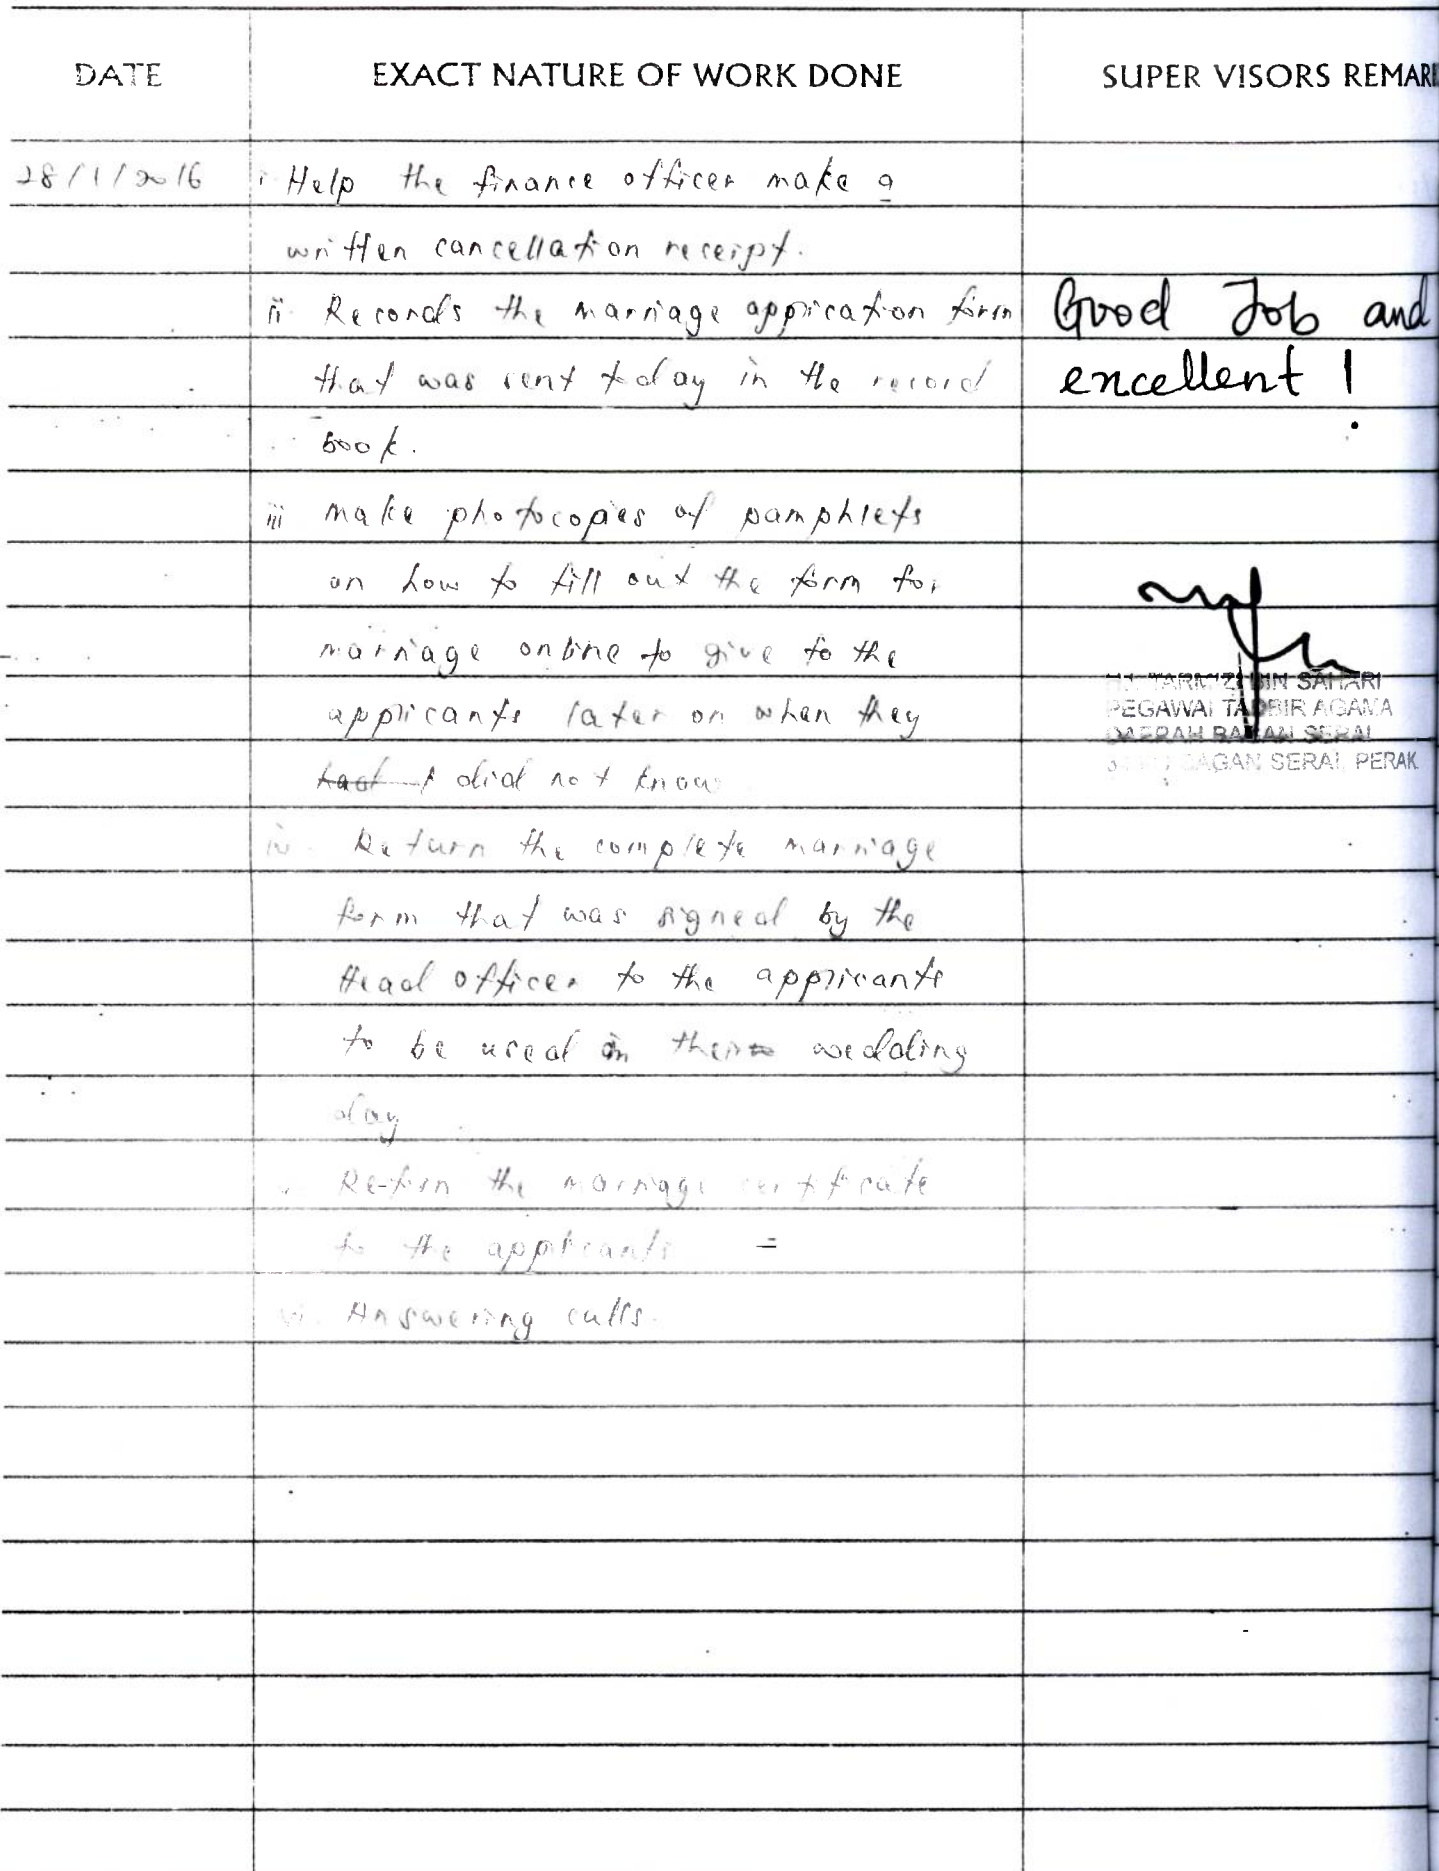 DATE EXACT NATURE OF WORK DONE SUPER VISORS REMAR
28/1/2016 i Help the finance officer make a
written cancellation receipt.
ii Records the marriage appication form Good Job and
that was sent today in the record excellent !
book.
iii make photocopies of pamphlets
on how to fill out the form for
marriage online to give to the
applicants later on when they
did not know
iv Return the complete marriage
form that was signed by the
Head officer to the applicants
to be used in their wedding
day
v Return the marriage certificate
to the applicants
vi Answering calls.
HJ. TARMIZI BIN SAHARI
PEGAWAI TADBIR AGAMA
DAERAH BAGAN SERAI
BAGAN SERAI, PERAK